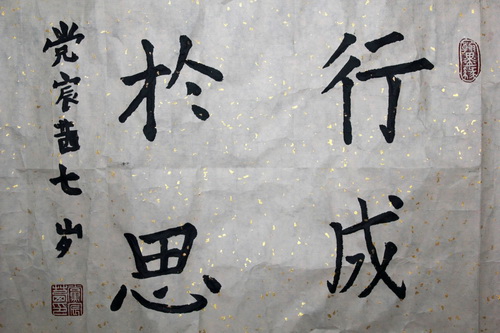 行成
於思
党宸茜七岁